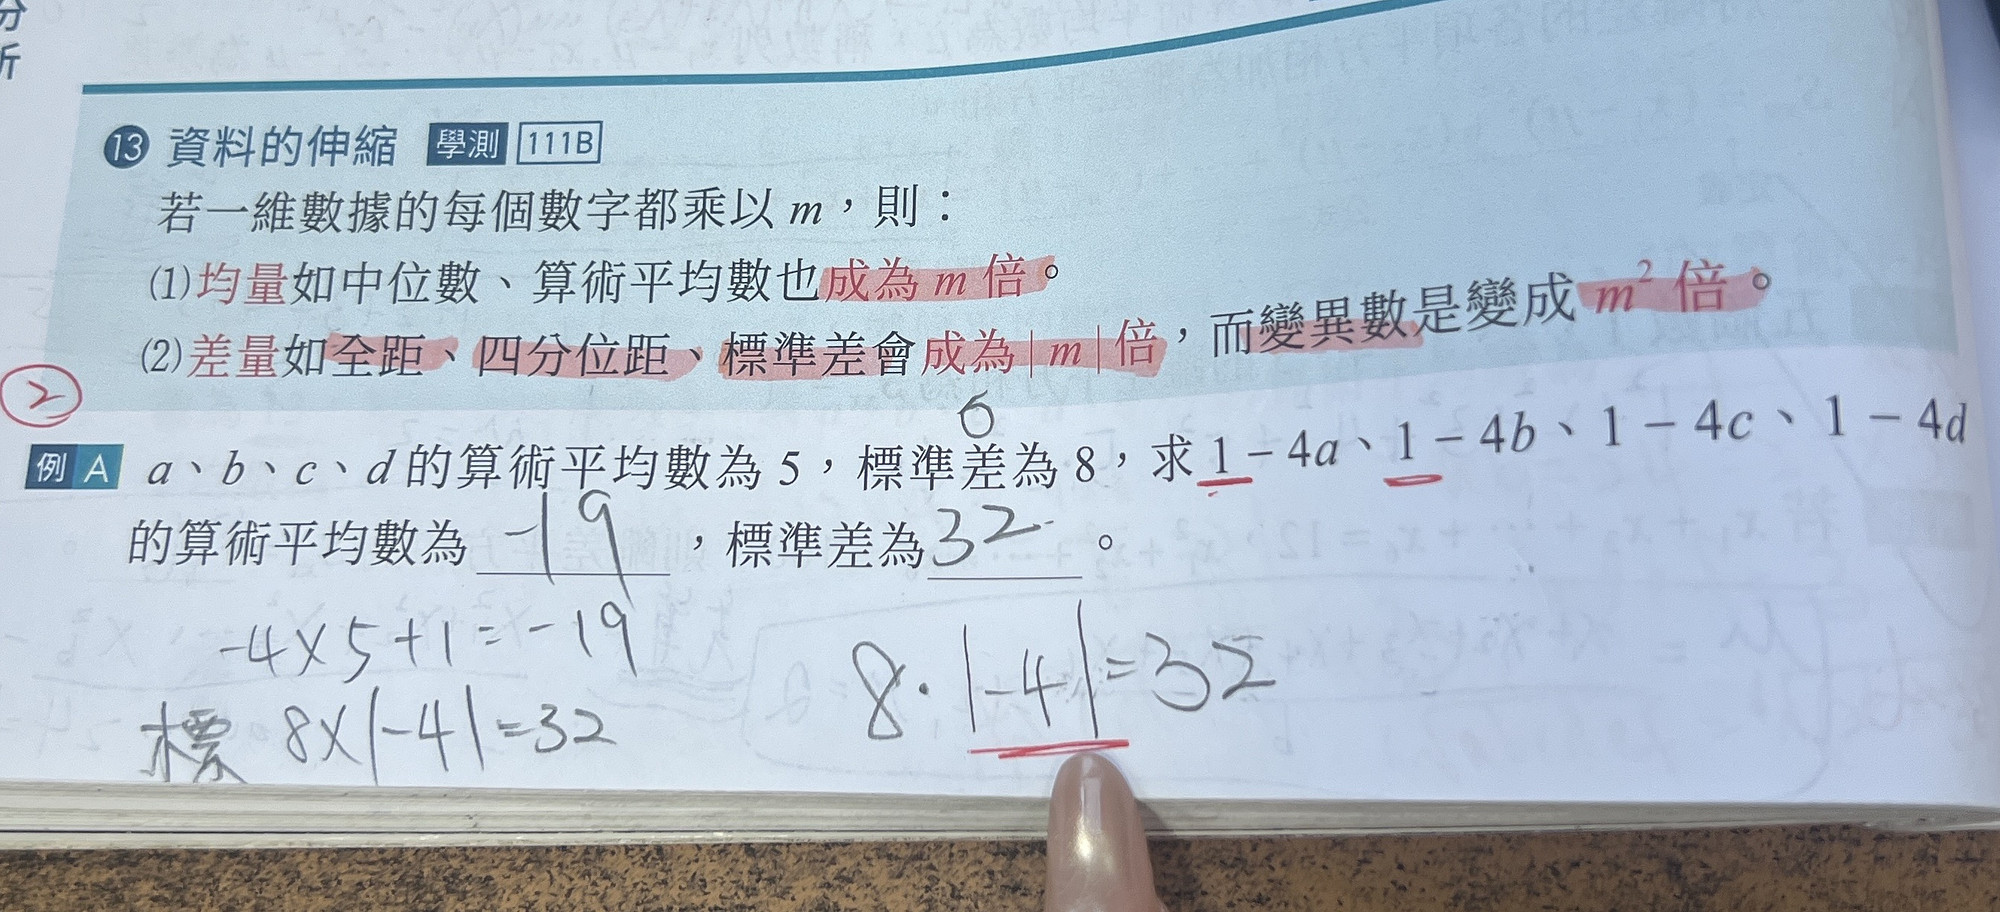 分
析
⓭ 資料的伸縮 學測 111B
若一維數據的每個數字都乘以 m，則：
⑴均量如中位數、算術平均數也成為 m 倍。
⑵差量如全距、四分位距、標準差會成為 | m | 倍，而變異數是變成 m² 倍。
2
6
例 A a、b、c、d 的算術平均數為 5，標準差為 8，求 1 − 4a、1 − 4b、1 − 4c、1 − 4d
的算術平均數為 -19，標準差為 32。
-4×5+1=-19
8·|-4|=32
標 8×|-4|=32